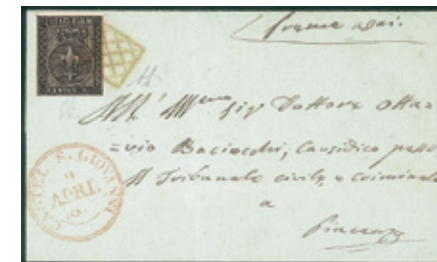 All' Ill.mo Sig. Dottore Otta=
=vio Baciocchi, Causidico presso
Il Tribunale civile, e criminale
a
Piacenza
CASTEL S. GIOVANNI
9
APRL